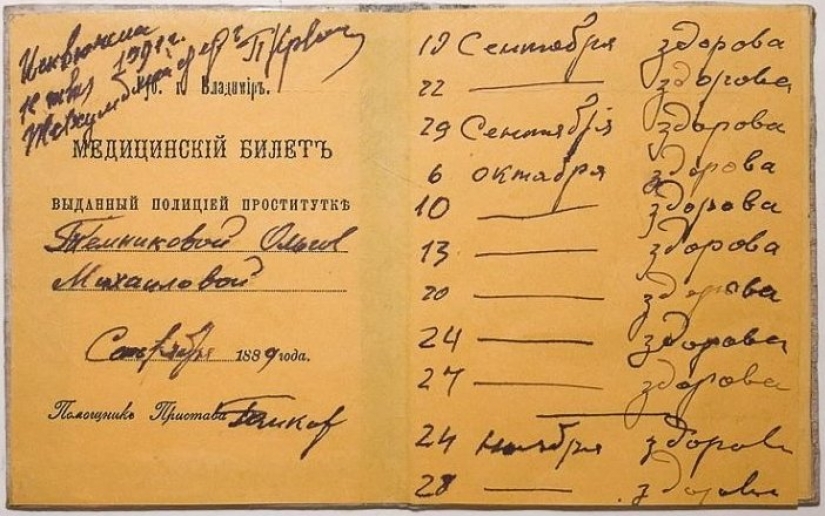 1891 г.
г. Владиміръ.
МЕДИЦИНСКІЙ БИЛЕТЪ
ВЫДАННЫЙ ПОЛИЦІЕЙ ПРОСТИТУТКѢ
Темниковой Ольгѣ
Михаиловой
Сентября 1889 года.
Помощникъ Пристава
19 Сентября здорова
22 — здорова
29 Сентября здорова
6 октября здорова
10 — здорова
13 — здорова
20 — здорова
24 — здорова
27 — здорова
24 ноября здорова
28 — здорова